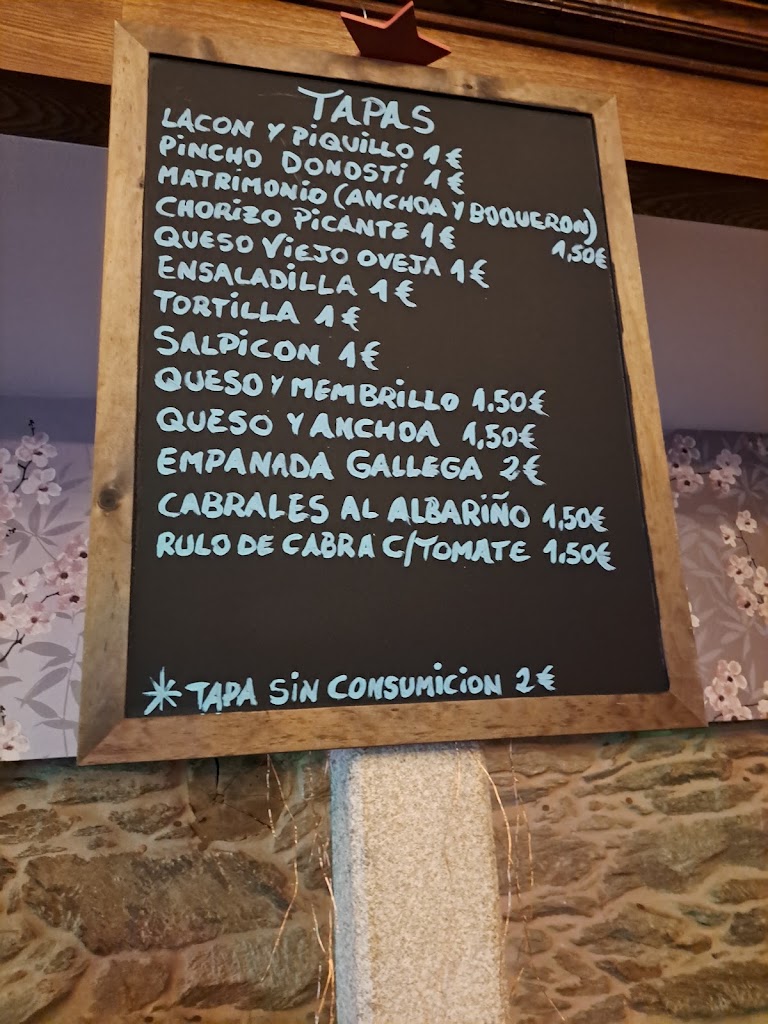 TAPAS
LACON Y PIQUILLO 1€
PINCHO DONOSTI 1€
MATRIMONIO (ANCHOA Y BOQUERON)
1,50€
CHORIZO PICANTE 1€
QUESO VIEJO OVEJA 1€
ENSALADILLA 1€
TORTILLA 1€
SALPICON 1€
QUESO Y MEMBRILLO 1.50€
QUESO Y ANCHOA 1,50€
EMPANADA GALLEGA 2€
CABRALES AL ALBARIÑO 1,50€
RULO DE CABRA C/TOMATE 1.50€
* TAPA SIN CONSUMICION 2€